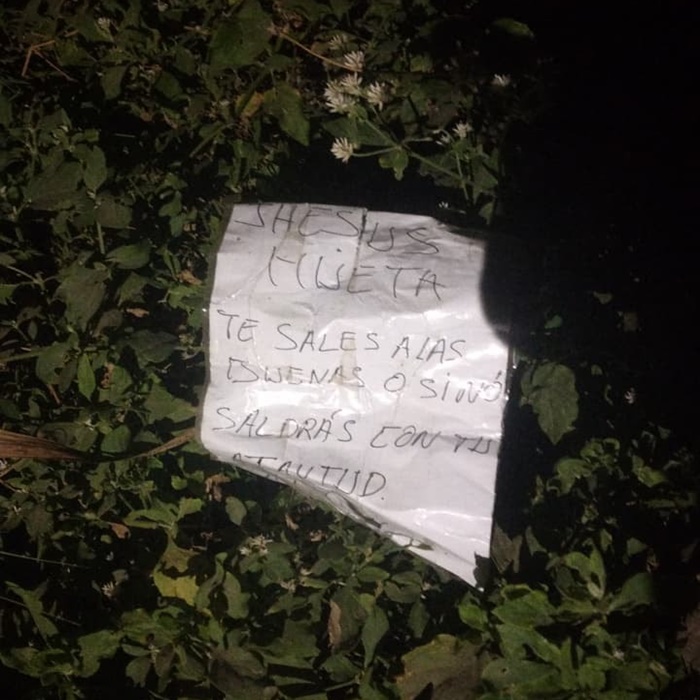 JHESUS
HUETA
TE SALES A LAS
BUENAS O SINÓ
SALDRÁS CON TU
ATAUTUD.